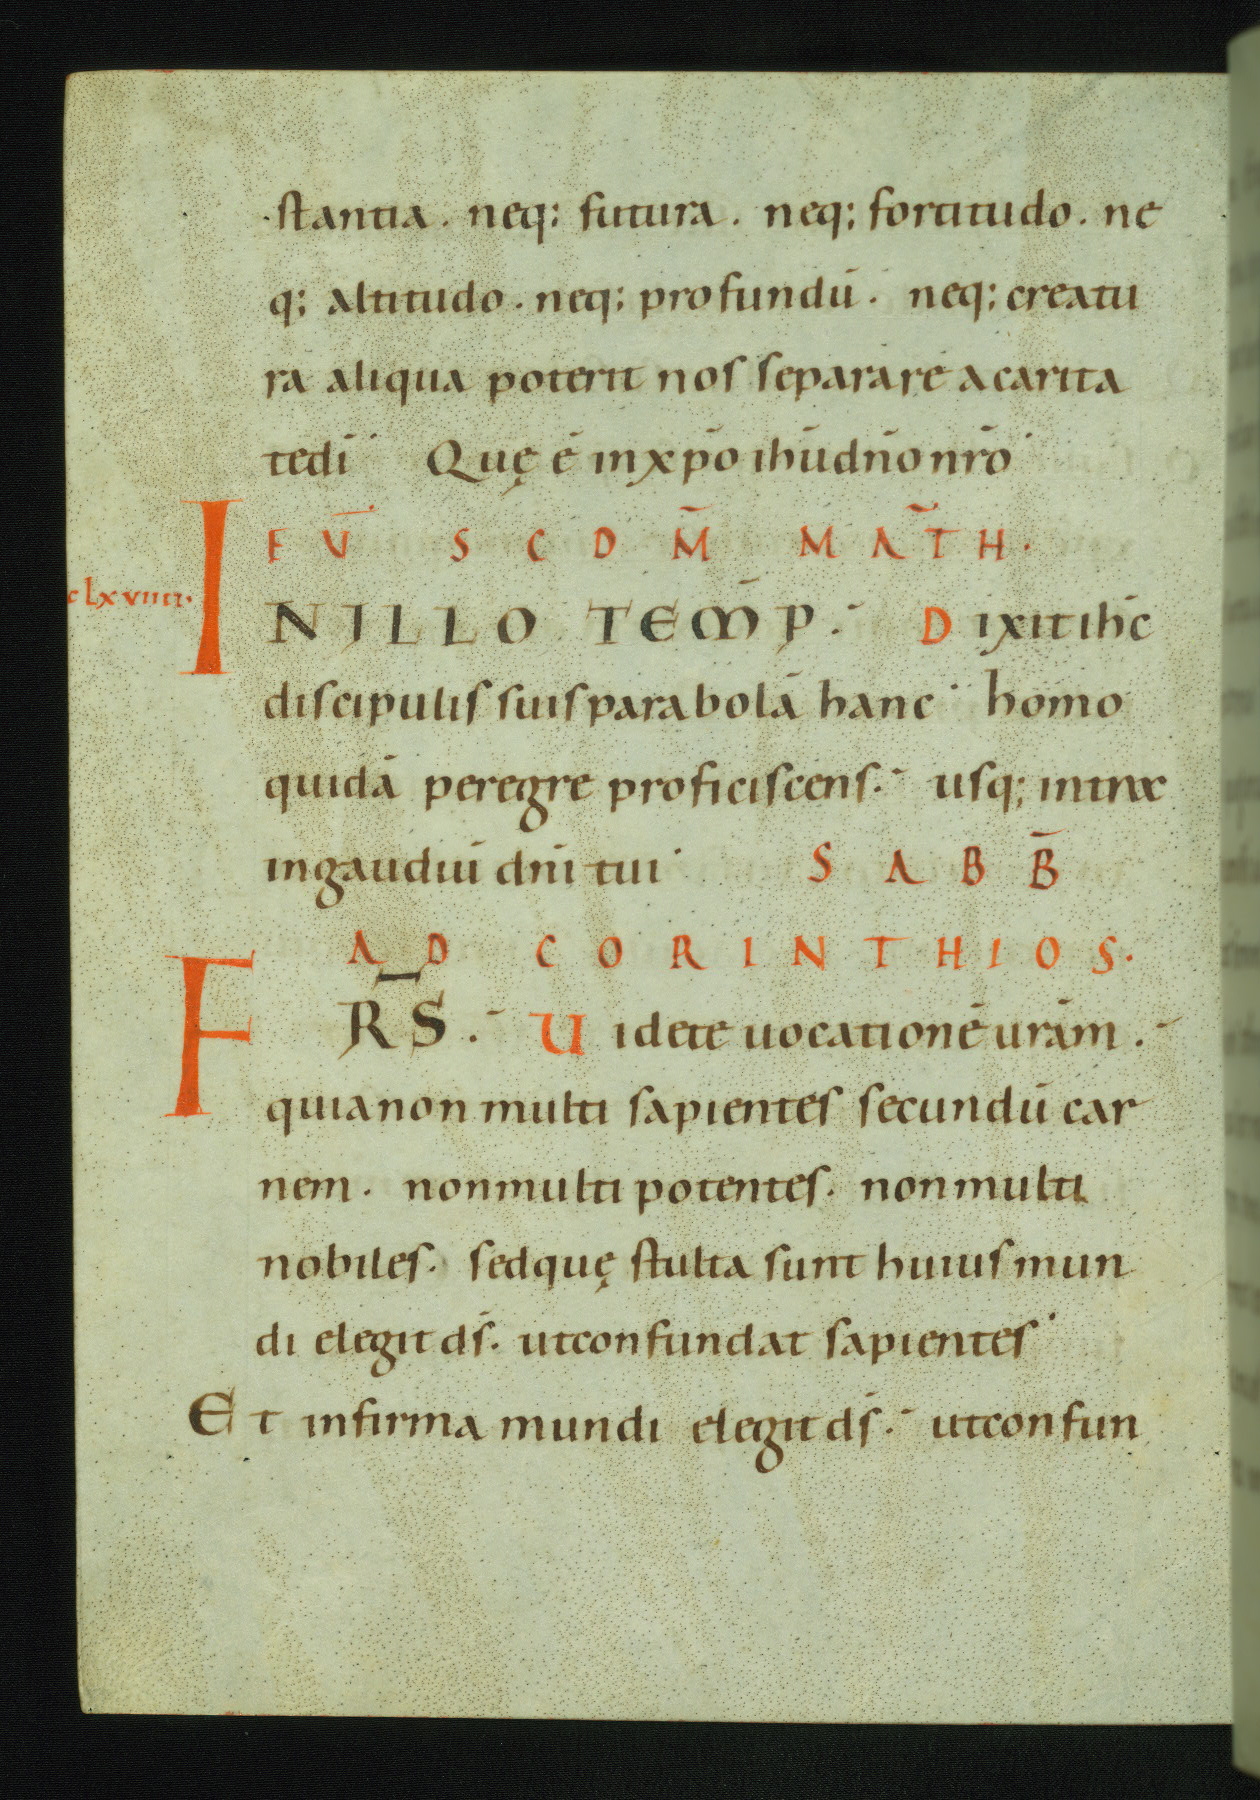 ·stantia. neq; futura. neq; fortitudo. ne
q; altitudo. neq; profundū. neq; creatu
ra aliqua poterit nos separare a carita
te dī Quę ē in xp̄o ihū dn̄o nr̄o
EṼ SCDM̃ MAT̃H.
clxviiii.
IN ILLO TEM̄P. Dixit ihc̄
discipulis suis parabolā hanc homo
quidā peregre proficiscens. usq; intra
in gaudiū dn̄i tui SABB̄
AD CORINTHIOS.
FR̄S. Uidete uocationē urā̄m.
quia non multi sapientes secundū car
nem. non multi potentes. non multi
nobiles. sed quę stulta sunt huius mun
di elegit ds̄. ut confundat sapientes
Et infirma mundi elegit ds̄. ut confun